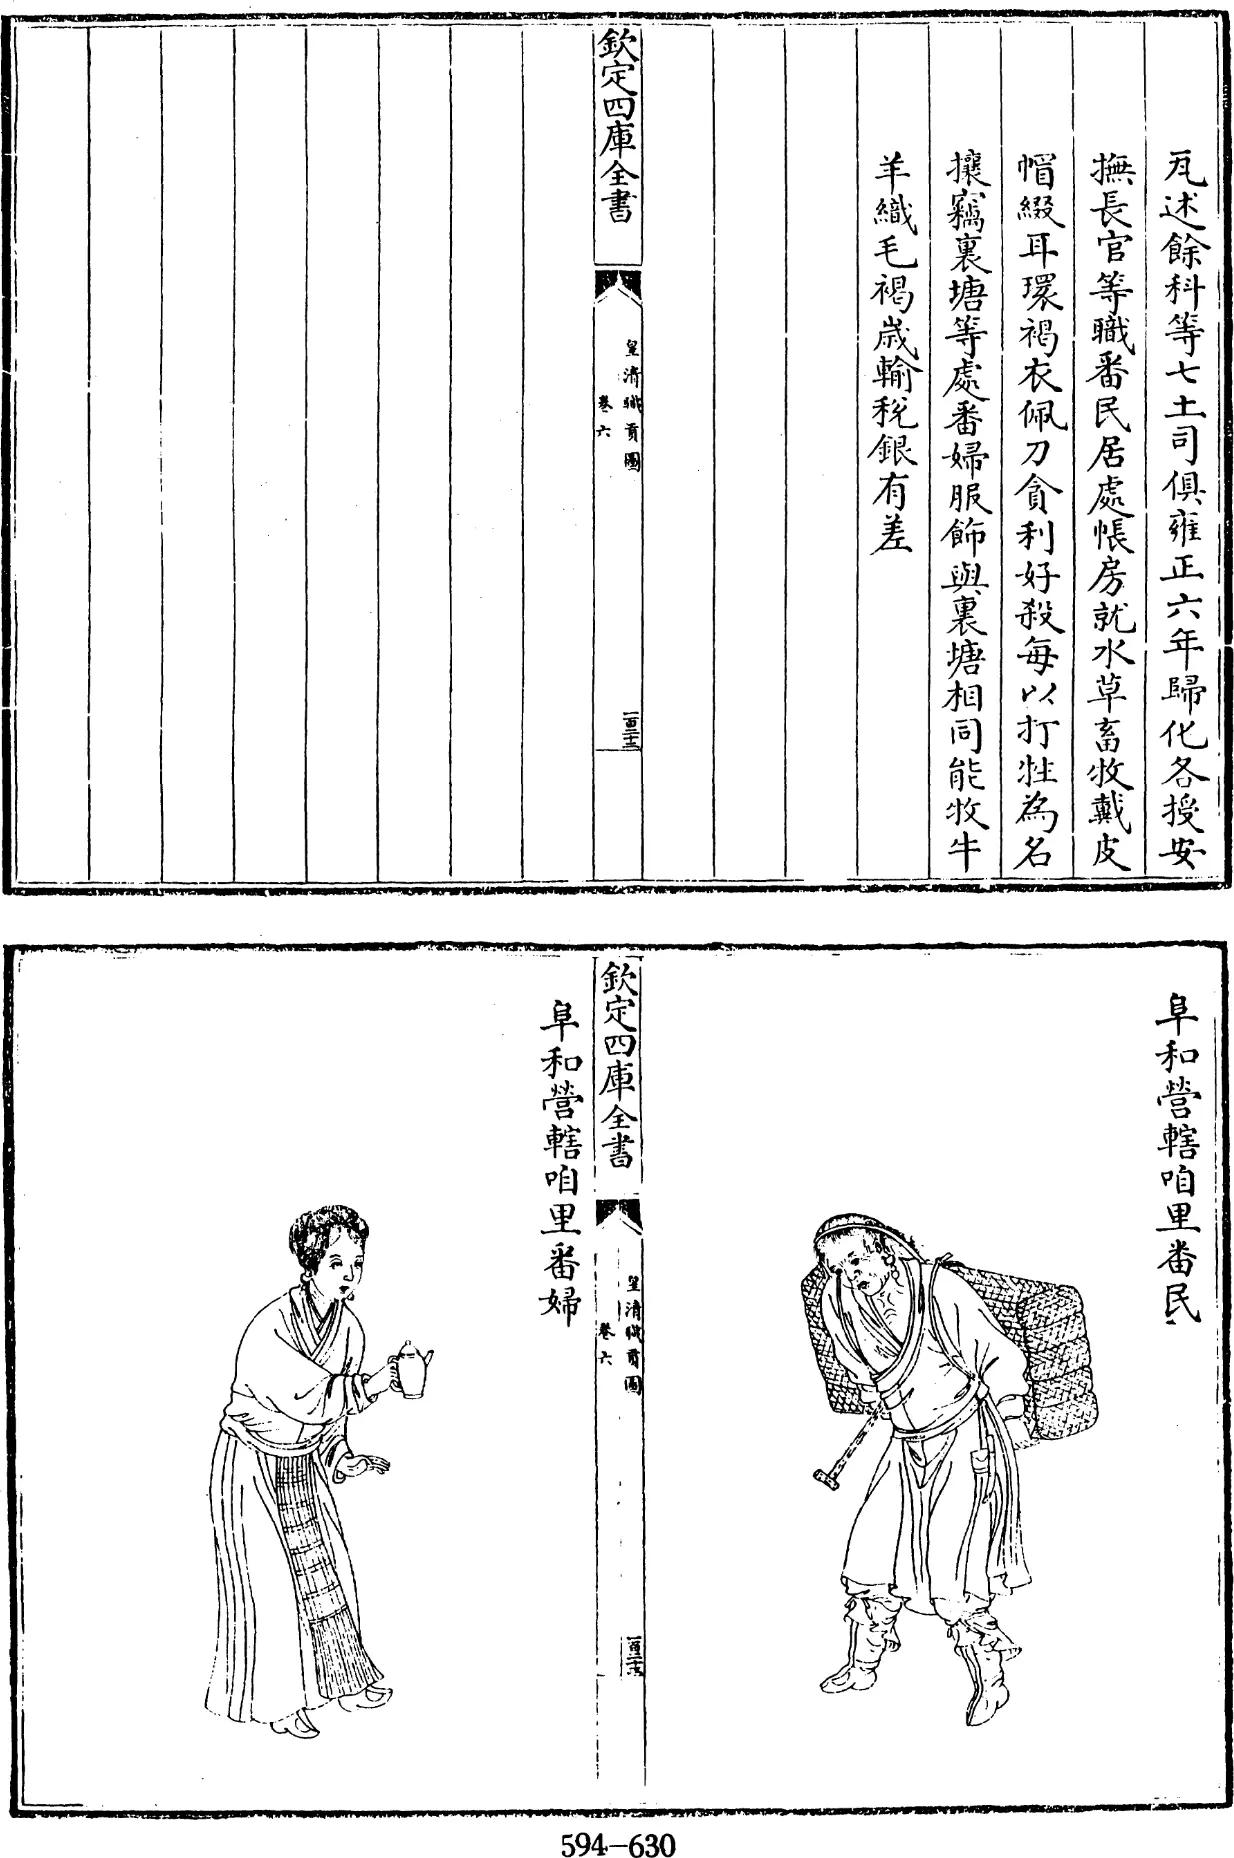 瓦述餘科等七土司俱雍正六年歸化各授安
撫長官等職番民居處帳房就水草畜牧戴皮
帽綴耳環褐衣佩刀貪利好殺每以打牲為名
攘竊裏塘等處番婦服飾與裏塘相同能牧牛
羊織毛褐歲輸稅銀有差
欽定四庫全書
皇清職貢圖
卷六
阜和營轄咱里番民
欽定四庫全書
皇清職貢圖
卷六
阜和營轄咱里番婦
594-630